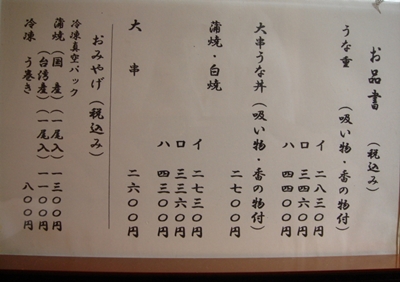 お品書（税込み）
うな重（吸い物・香の物付）
イ 二八三〇円
ロ 三四六〇円
ハ 四四〇〇円
大串うな丼（吸い物・香の物付）
二七〇〇円
蒲焼・白焼
イ 二七三〇円
ロ 三三六〇円
ハ 四三〇〇円
大串 二六〇〇円
おみやげ（税込み）
冷凍真空パック
蒲焼（国産）（一尾入）一三〇〇円
（台湾産）（一尾入）一一〇〇円
冷凍 う巻き 八〇〇円